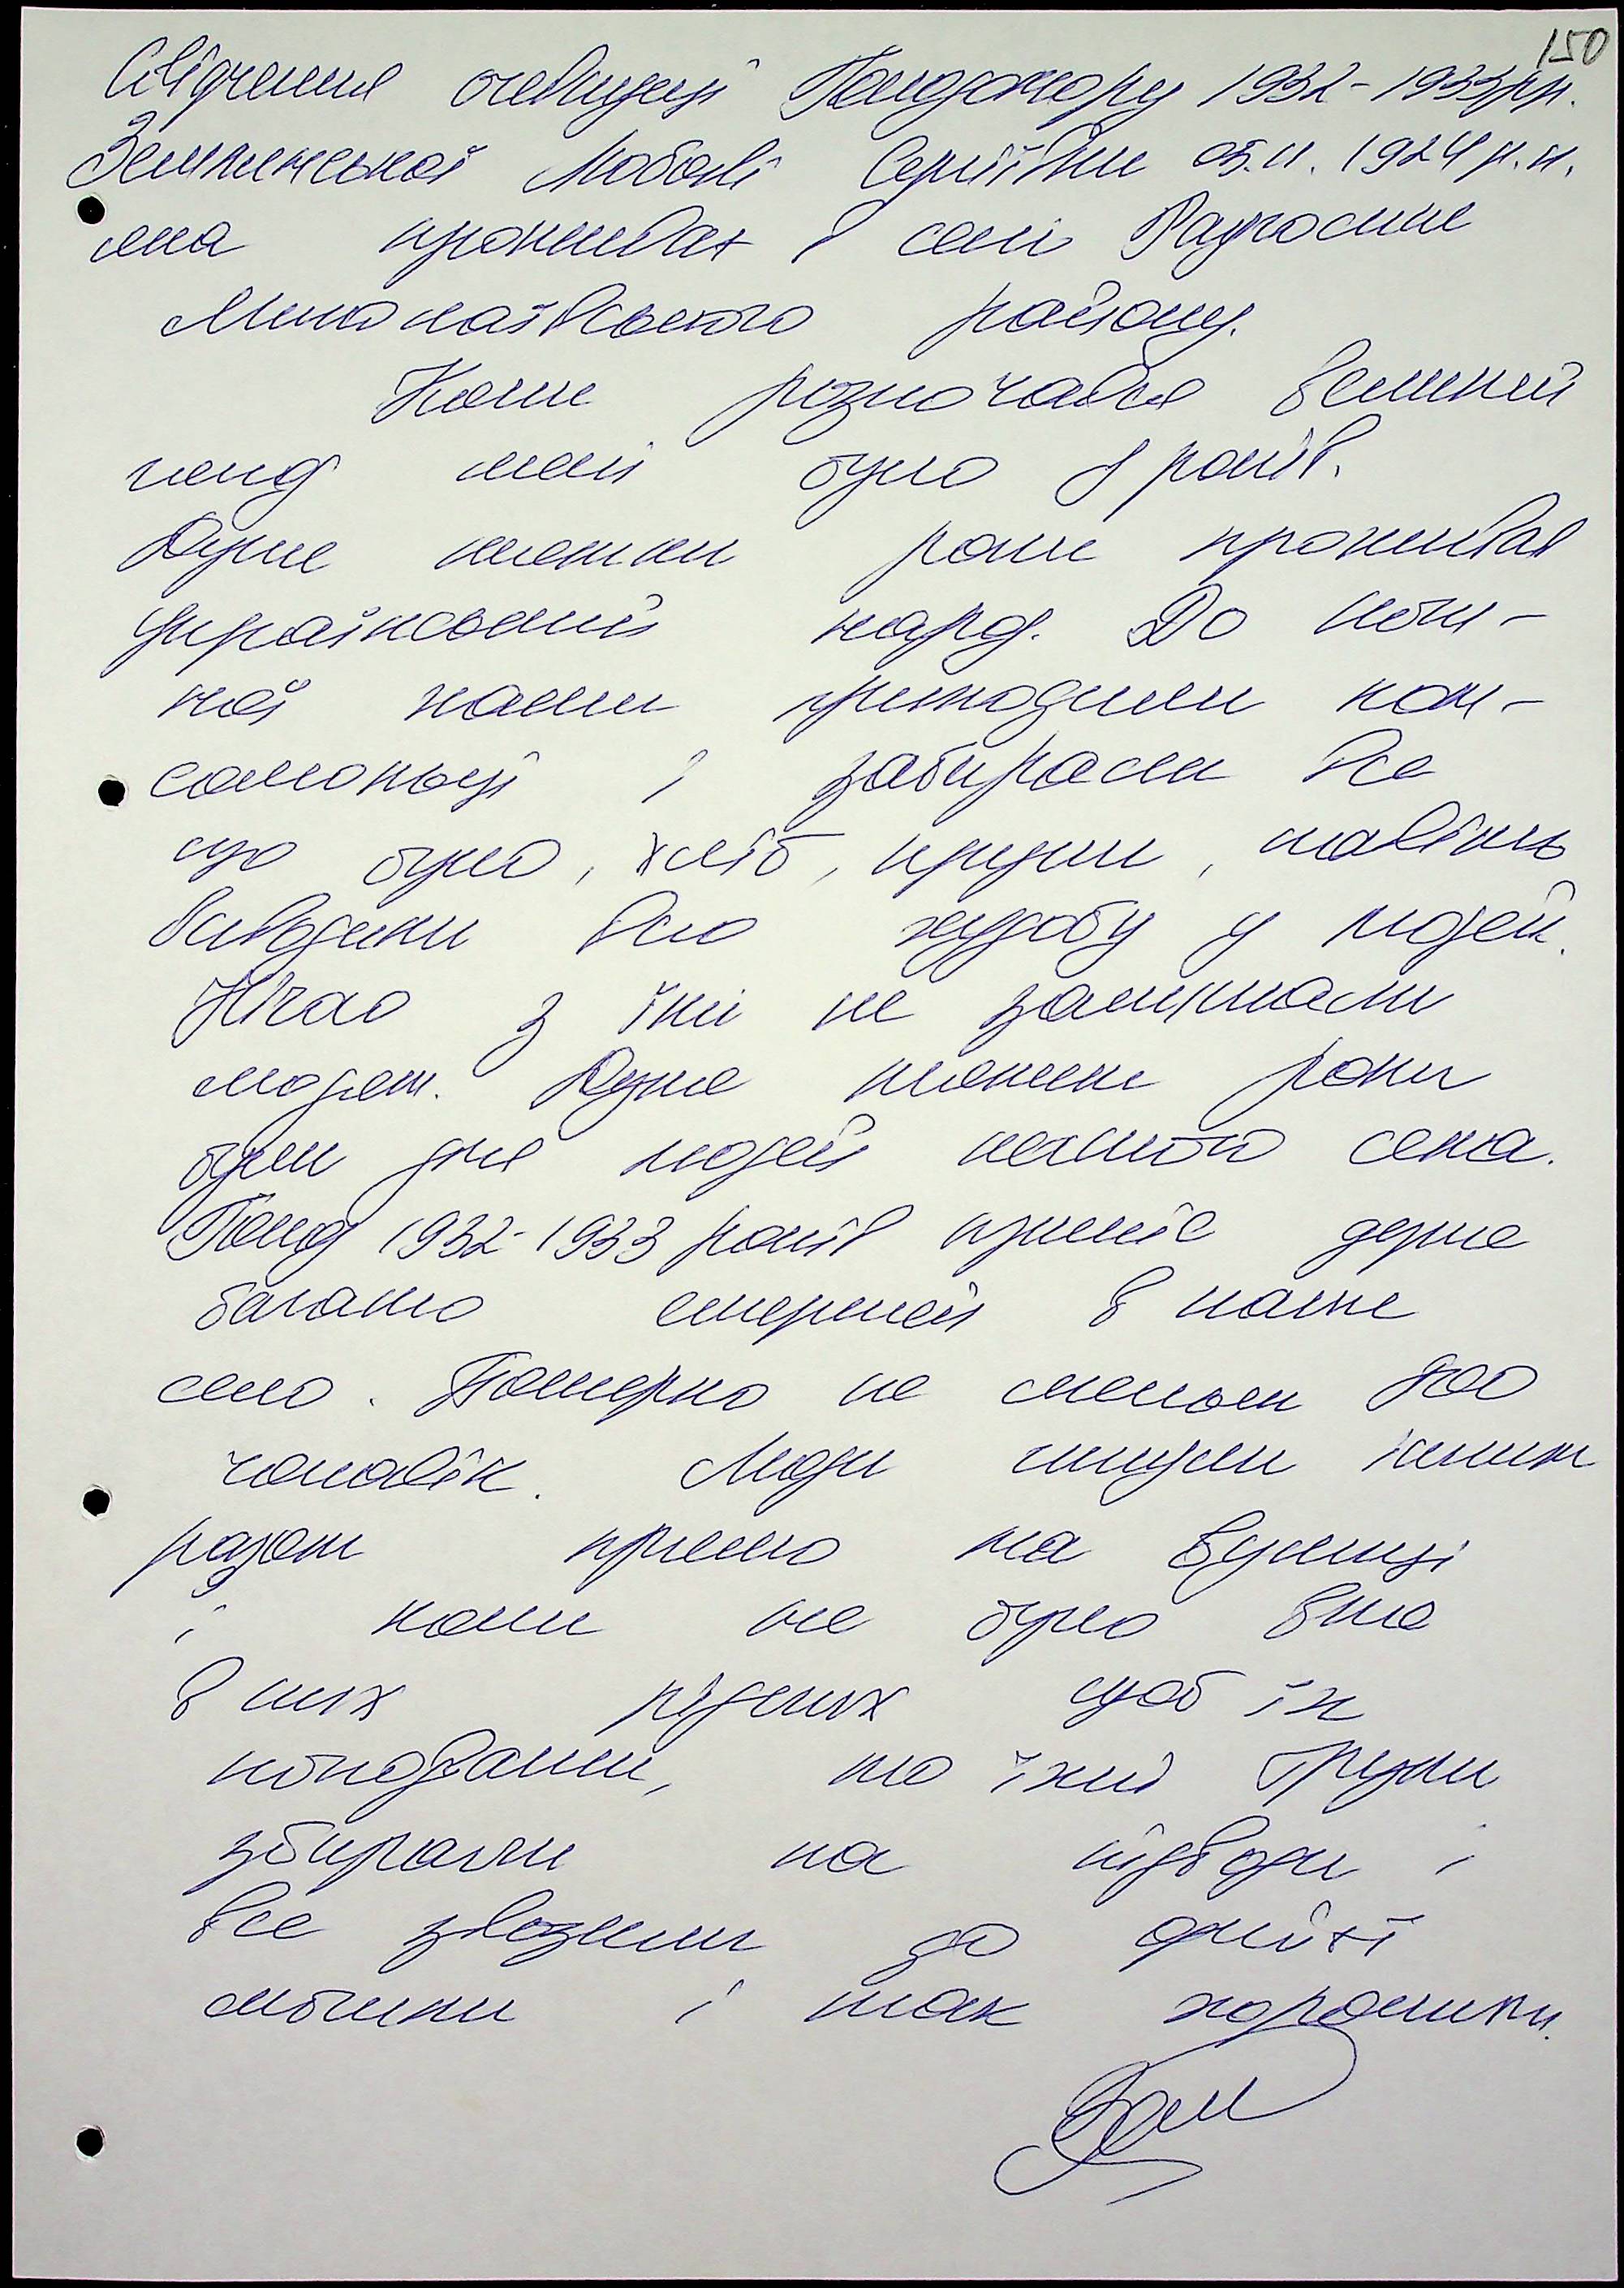 150
Свідчення очевидця Голодомору 1932-1933рр.
Землинської Любові Сергіївни 05.11.1924 р.н.
яка проживає в селі
Миколаївського району.
Коли розпочався великий
голод мені було 8 років.
Дуже тяжкі роки проживав
Український народ. До кож-
ної хати приходили ком-
сомольці і забирали все
що було, хліб, крупи, навіть
виводили всю худобу у людей.
Нічого з їжі не залишали
людям. Дуже тяжкі роки
були для людей нашого села.
Голод 1932-1933 років приніс дуже
багато смертей в наше
село. Померло не меньш
чоловік. Люди гинули
разом прямо на вулиці
і коли не було вже
в них рідних щоб їх
поховали, то їхні трупи
збирали на підводи і
все звозили до однієї
могили і так хоронили.